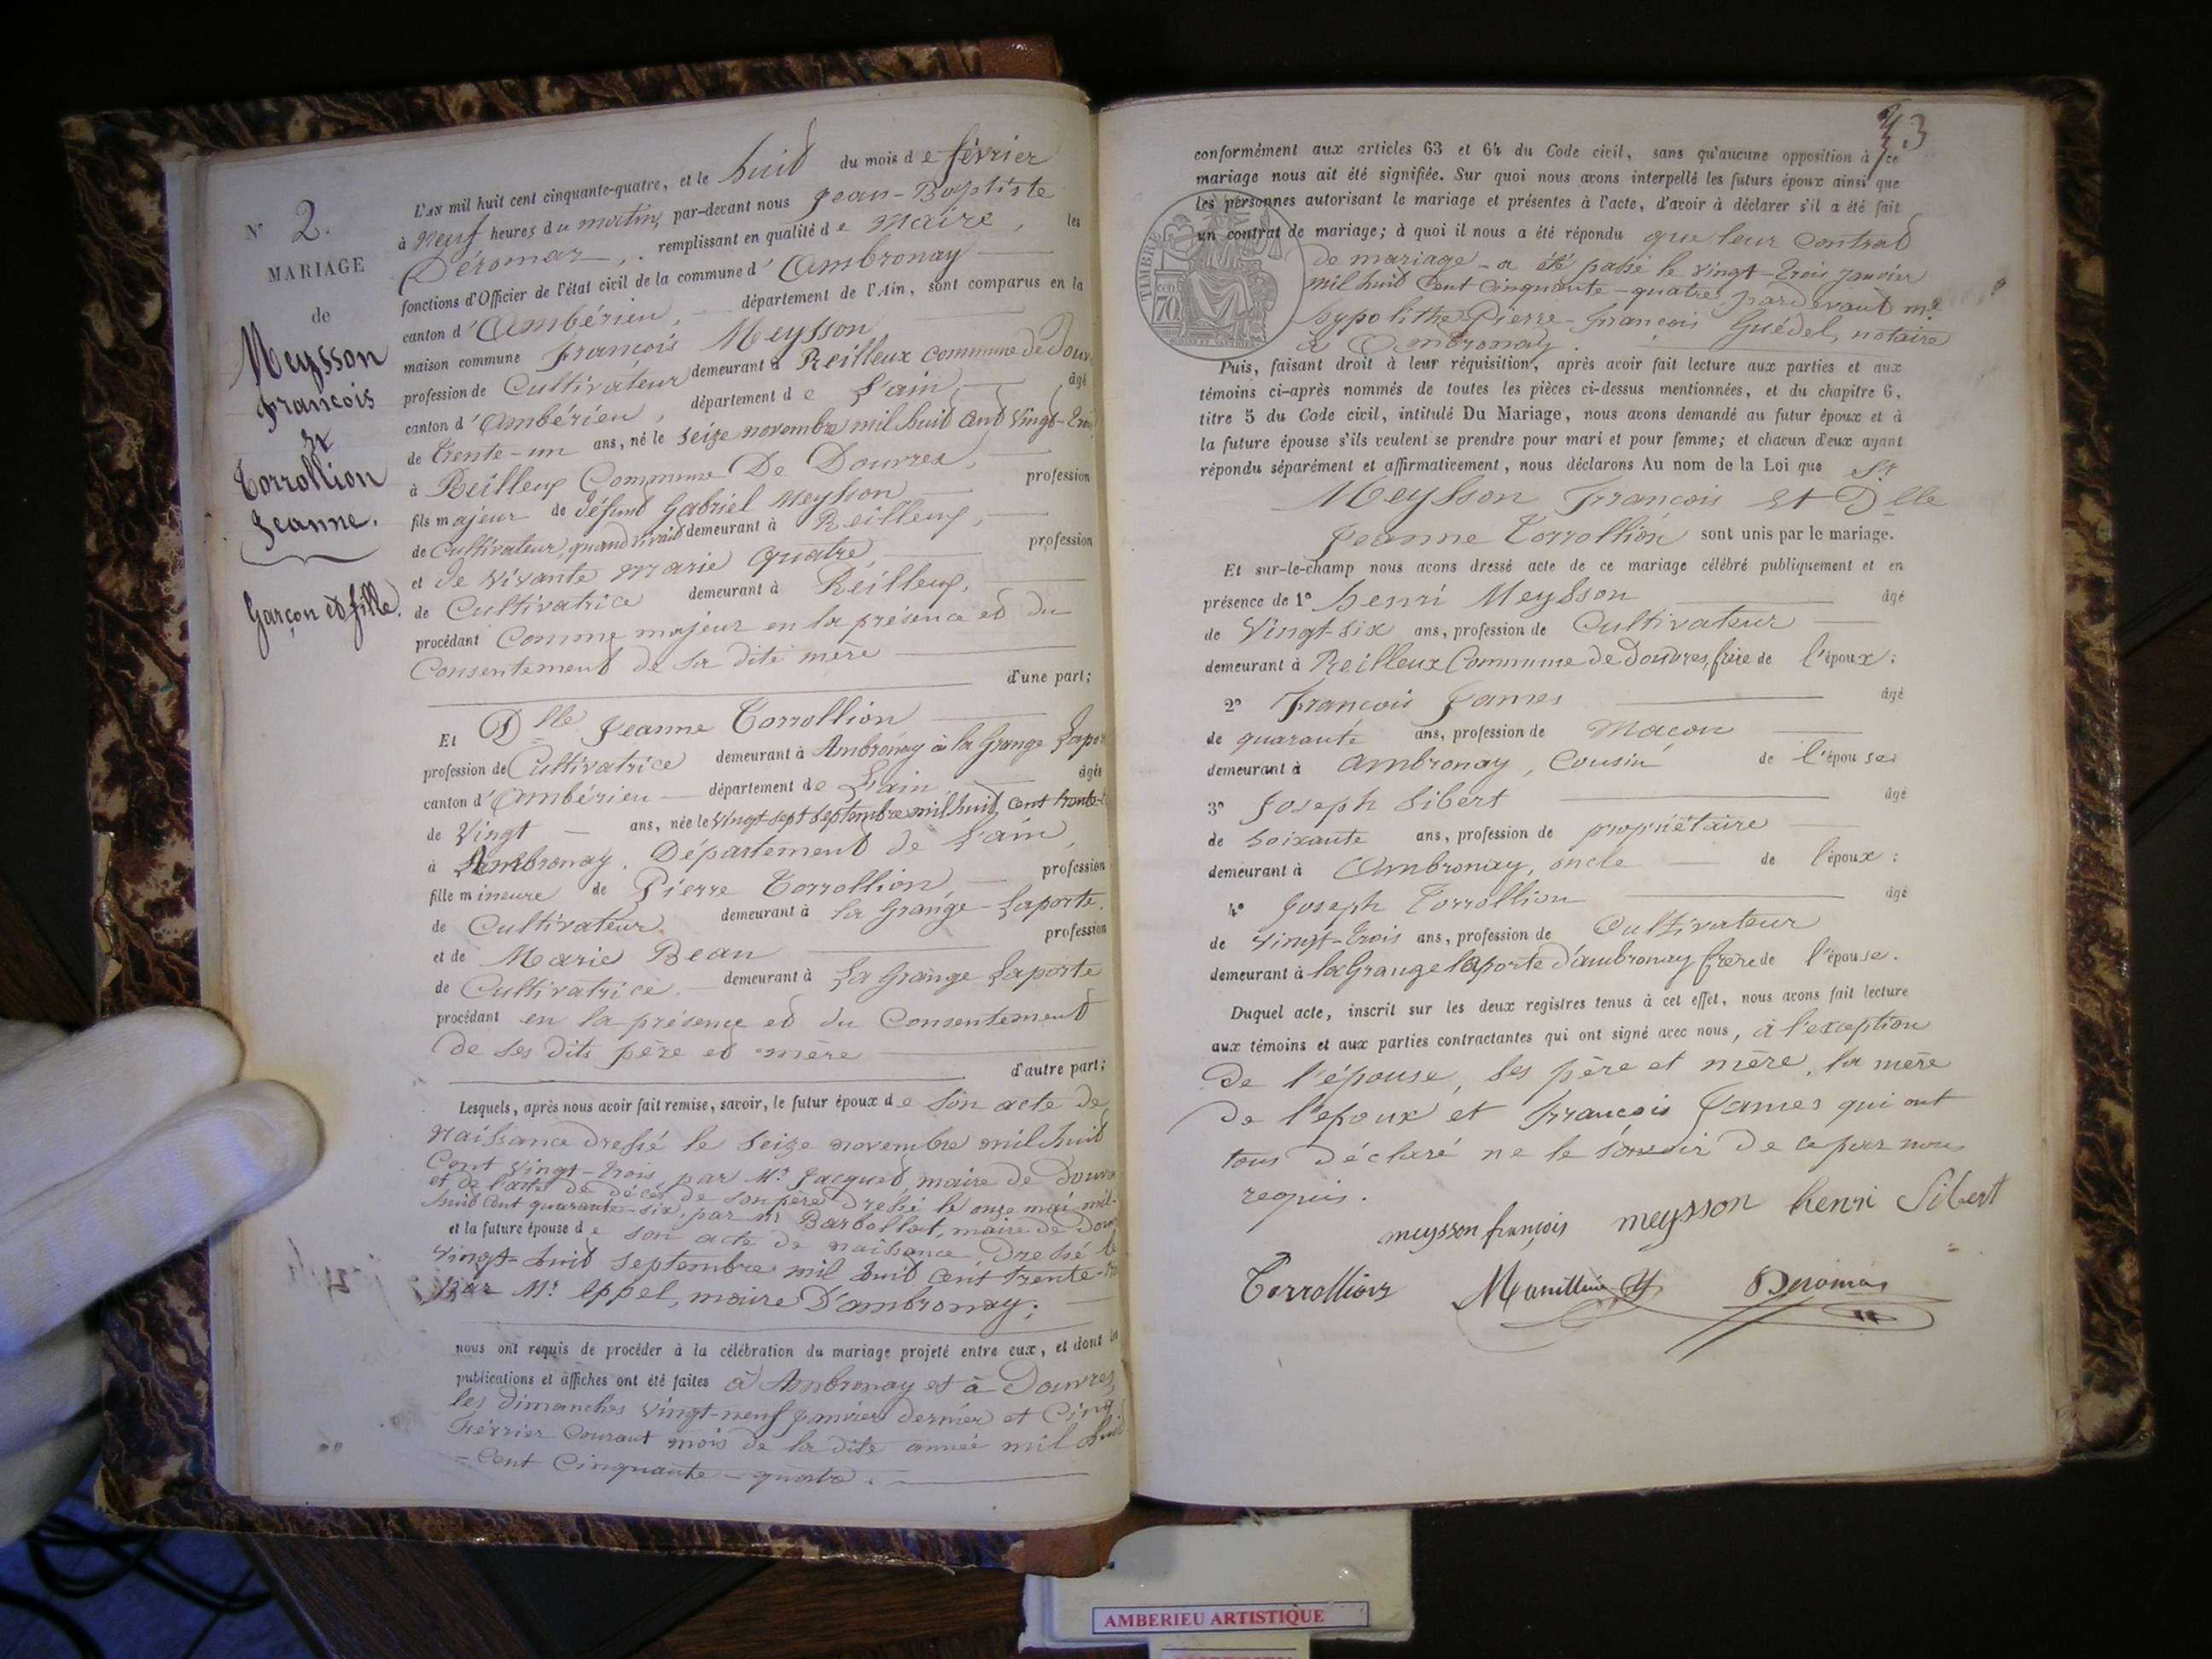 N° 2.
MARIAGE
de
Meysson
François
&
Torrollion
Jeanne.
Garçon et fille.
L'AN mil huit cent cinquante-quatre, et le huit du mois de février
à neuf heures du matin, par-devant nous Jean-Baptiste
Déromas, remplissant en qualité de Maire, les
fonctions d'Officier de l'état civil de la commune d'Ambronay
canton d'Ambérieu, département de l'Ain, sont comparus en la
maison commune François Meysson
profession de Cultivateur demeurant à Reilleux commune de Douv
canton d'Ambérieu, département de L'ain, âgé
de trente-un ans, né le seize novembre mil huit cent vingt-troi
à Reilleux Commune De Douvres,
fils majeur de défunt Gabriel Meysson profession
de Cultivateur, quand vivait demeurant à Reilleux,
et de vivante Marie Quatre, profession
de Cultivatrice demeurant à Reilleux,
procédant Comme majeur en la présence et du
Consentement de sa dite mère
d'une part;
Et Dlle Jeanne Torrollion
profession de Cultivatrice demeurant à Ambronay à la Grange Lapor
canton d'Ambérieu département de L'ain âgée
de Vingt ans, née le vingt sept septembre mil huit cent trente-t
à Ambronay. Département de L'ain,
fille mineure de Pierre Torrollion, profession
de Cultivateur. demeurant à la Grange-Laporte.
et de Marie Beau profession
de Cultivatrice. demeurant à La Grange Laporte
procédant en la présence et du Consentement
de ses dits père et mère
d'autre part;
Lesquels, après nous avoir fait remise, savoir, le futur époux de son acte de
Naissance dressé le seize novembre mil huit
Cent vingt-trois par Mr Jacquet, maire de Douvr
et de l'acte de décès de son père dressé le onze mai mil-
huit cent quarante-six, par Mr Barbollat, maire de Dou
et la future épouse de son acte de naissance dressé le
vingt-huit septembre mil huit cent trente-t
par Mr Eppel, maire D'ambronay;
nous ont requis de procéder à la célébration du mariage projeté entre eux, et dont les
publications et affiches ont été faites à Ambronay et à Douvres,
les dimanches vingt-neuf janvier dernier et Cinq
Février Courant mois de la dite année mil huit
-Cent Cinquante-quatre.
3
conformément aux articles 63 et 64 du Code civil, sans qu'aucune opposition à ce
mariage nous ait été signifiée. Sur quoi nous avons interpellé les futurs époux ainsi que
les personnes autorisant le mariage et présentes à l'acte, d'avoir à déclarer s'il a été fait
un contrat de mariage; à quoi il nous a été répondu que leur Contrat
de mariage a été passé le vingt-trois janvier
mil huit Cent Cinquante-quatre, pardevant me
hypolithe-Pierre-François Guédel, notaire
à Ambronay.
TIMBRE
70
Puis, faisant droit à leur réquisition, après avoir fait lecture aux parties et aux
témoins ci-après nommés de toutes les pièces ci-dessus mentionnées, et du chapitre 6,
titre 5 du Code civil, intitulé Du Mariage, nous avons demandé au futur époux et à
la future épouse s'ils veulent se prendre pour mari et pour femme; et chacun d'eux ayant
répondu séparément et affirmativement, nous déclarons Au nom de la Loi que Sr
Meysson François Et Dlle
Jeanne Torrollion sont unis par le mariage.
Et sur-le-champ nous avons dressé acte de ce mariage célébré publiquement et en
présence de 1° henri Meysson âgé
de Vingt-six ans, profession de Cultivateur
demeurant à Reilleux Commune de Douvres, frère de l'époux;
2° François James âgé
de quarante ans, profession de Maçon
demeurant à Ambronay, Cousin de l'épouse
3° Joseph Sibert âgé
de soixante ans, profession de propriétaire
demeurant à Ambronay, oncle de l'époux;
4° Joseph Torrollion âgé
de vingt-trois ans, profession de Cultivateur
demeurant à la Grange laporte d'ambronay frère de l'épouse.
Duquel acte, inscrit sur les deux registres tenus à cet effet, nous avons fait lecture
aux témoins et aux parties contractantes qui ont signé avec nous, à l'exception
de l'épouse, ses père et mère, la mère
de l'époux et François James qui ont
tous déclaré ne le savoir de ce par nous
requis.
meysson françois meysson henri Sibert
Torrollion Deromas
AMBERIEU ARTISTIQUE